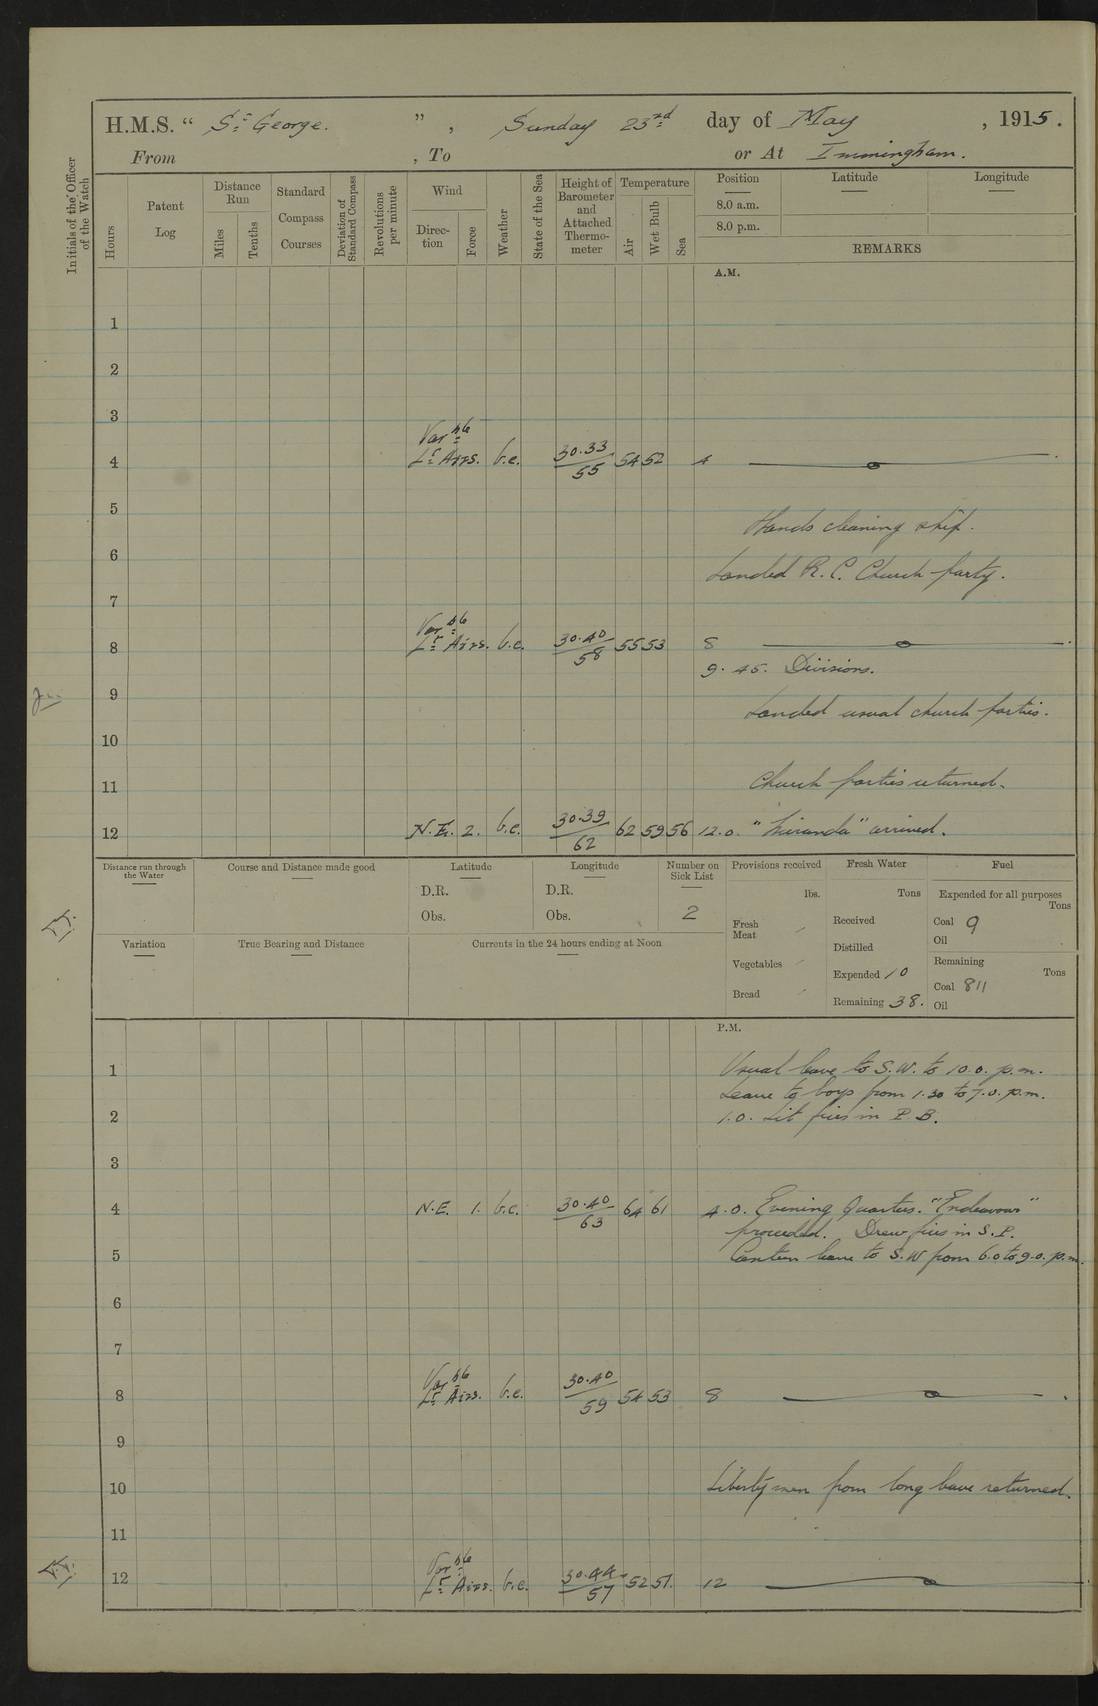 H.M.S. “ St George. ” , Sunday 23rd day of May , 1915.
From , To or At Immingham.
Initials of the Officer of the Watch
Hours
Patent Log
Distance Run
Miles
Tenths
Standard Compass Courses
Deviation of Standard Compass
Revolutions per minute
Wind
Direction
Force
Weather
State of the Sea
Height of Barometer and Attached Thermometer
Temperature
Air
Wet Bulb
Sea
Position Latitude Longitude
8.0 a.m.
8.0 p.m.
REMARKS
A.M.
1
2
3
4 Varble Lt Airs. b.c. 30.33/55 54 52 4
5 Hands cleaning ship.
6 Landed R.C. Church party.
7
8 Varble Lt Airs. b.c. 30.40/58 55 53 8
9.45. Divisions.
9 Landed usual church parties.
10
11 Church parties returned.
12 N.E. 2. b.c. 30.39/62 62 59 56 12.0. "Miranda" arrived.
Distance run through the Water
Course and Distance made good
Latitude
D.R.
Obs.
Longitude
D.R.
Obs.
Number on Sick List
2
Provisions received
lbs.
Fresh Meat
Vegetables
Bread
Fresh Water
Tons
Received
Distilled
Expended 10
Remaining 38.
Fuel
Expended for all purposes
Tons
Coal 9
Oil
Remaining
Tons
Coal 811
Oil
Variation
True Bearing and Distance
Currents in the 24 hours ending at Noon
P.M.
1 Usual leave to S.W. to 10.0. p.m.
Leave to boys from 1.30 to 7.0. p.m.
2 1.0. Lit fires in P.B.
3
4 N.E. 1. b.c. 30.40/63 64 61 4.0. Evening Quarters. "Endeavour"
proceeded. Drew fires in S.P.
5 Canteen leave to S.W from 6.0 to 9.0. p.m.
6
7
8 Varble Lt Airs. b.c. 30.40/59 54 53 8
9
10 Liberty men from long leave returned.
11
12 Varble Lt Airs. b.c. 30.44/57 52 51. 12